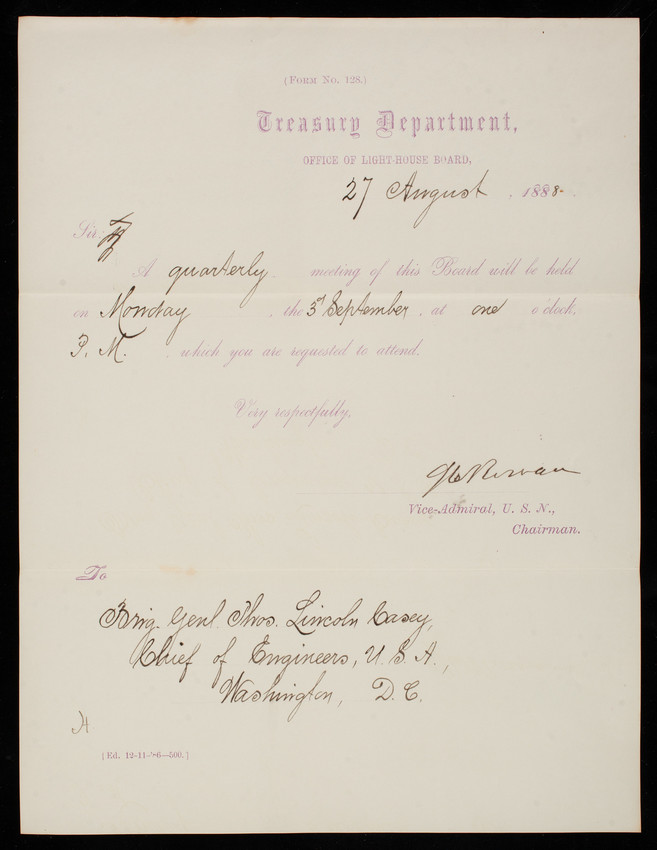 (Form No. 128.)
Treasury Department,
OFFICE OF LIGHT-HOUSE BOARD,
27 August, 1888.
Sir:
A quarterly meeting of this Board will be held
on Monday, the 3d September, at one o'clock,
P. M. which you are requested to attend.
Very respectfully,
Rowan
Vice-Admiral, U. S. N.,
Chairman.
To
Brig. Genl. Thos. Lincoln Casey,
Chief of Engineers, U. S. A.,
Washington, D. C.
[Ed. 12-11-'86—500.]